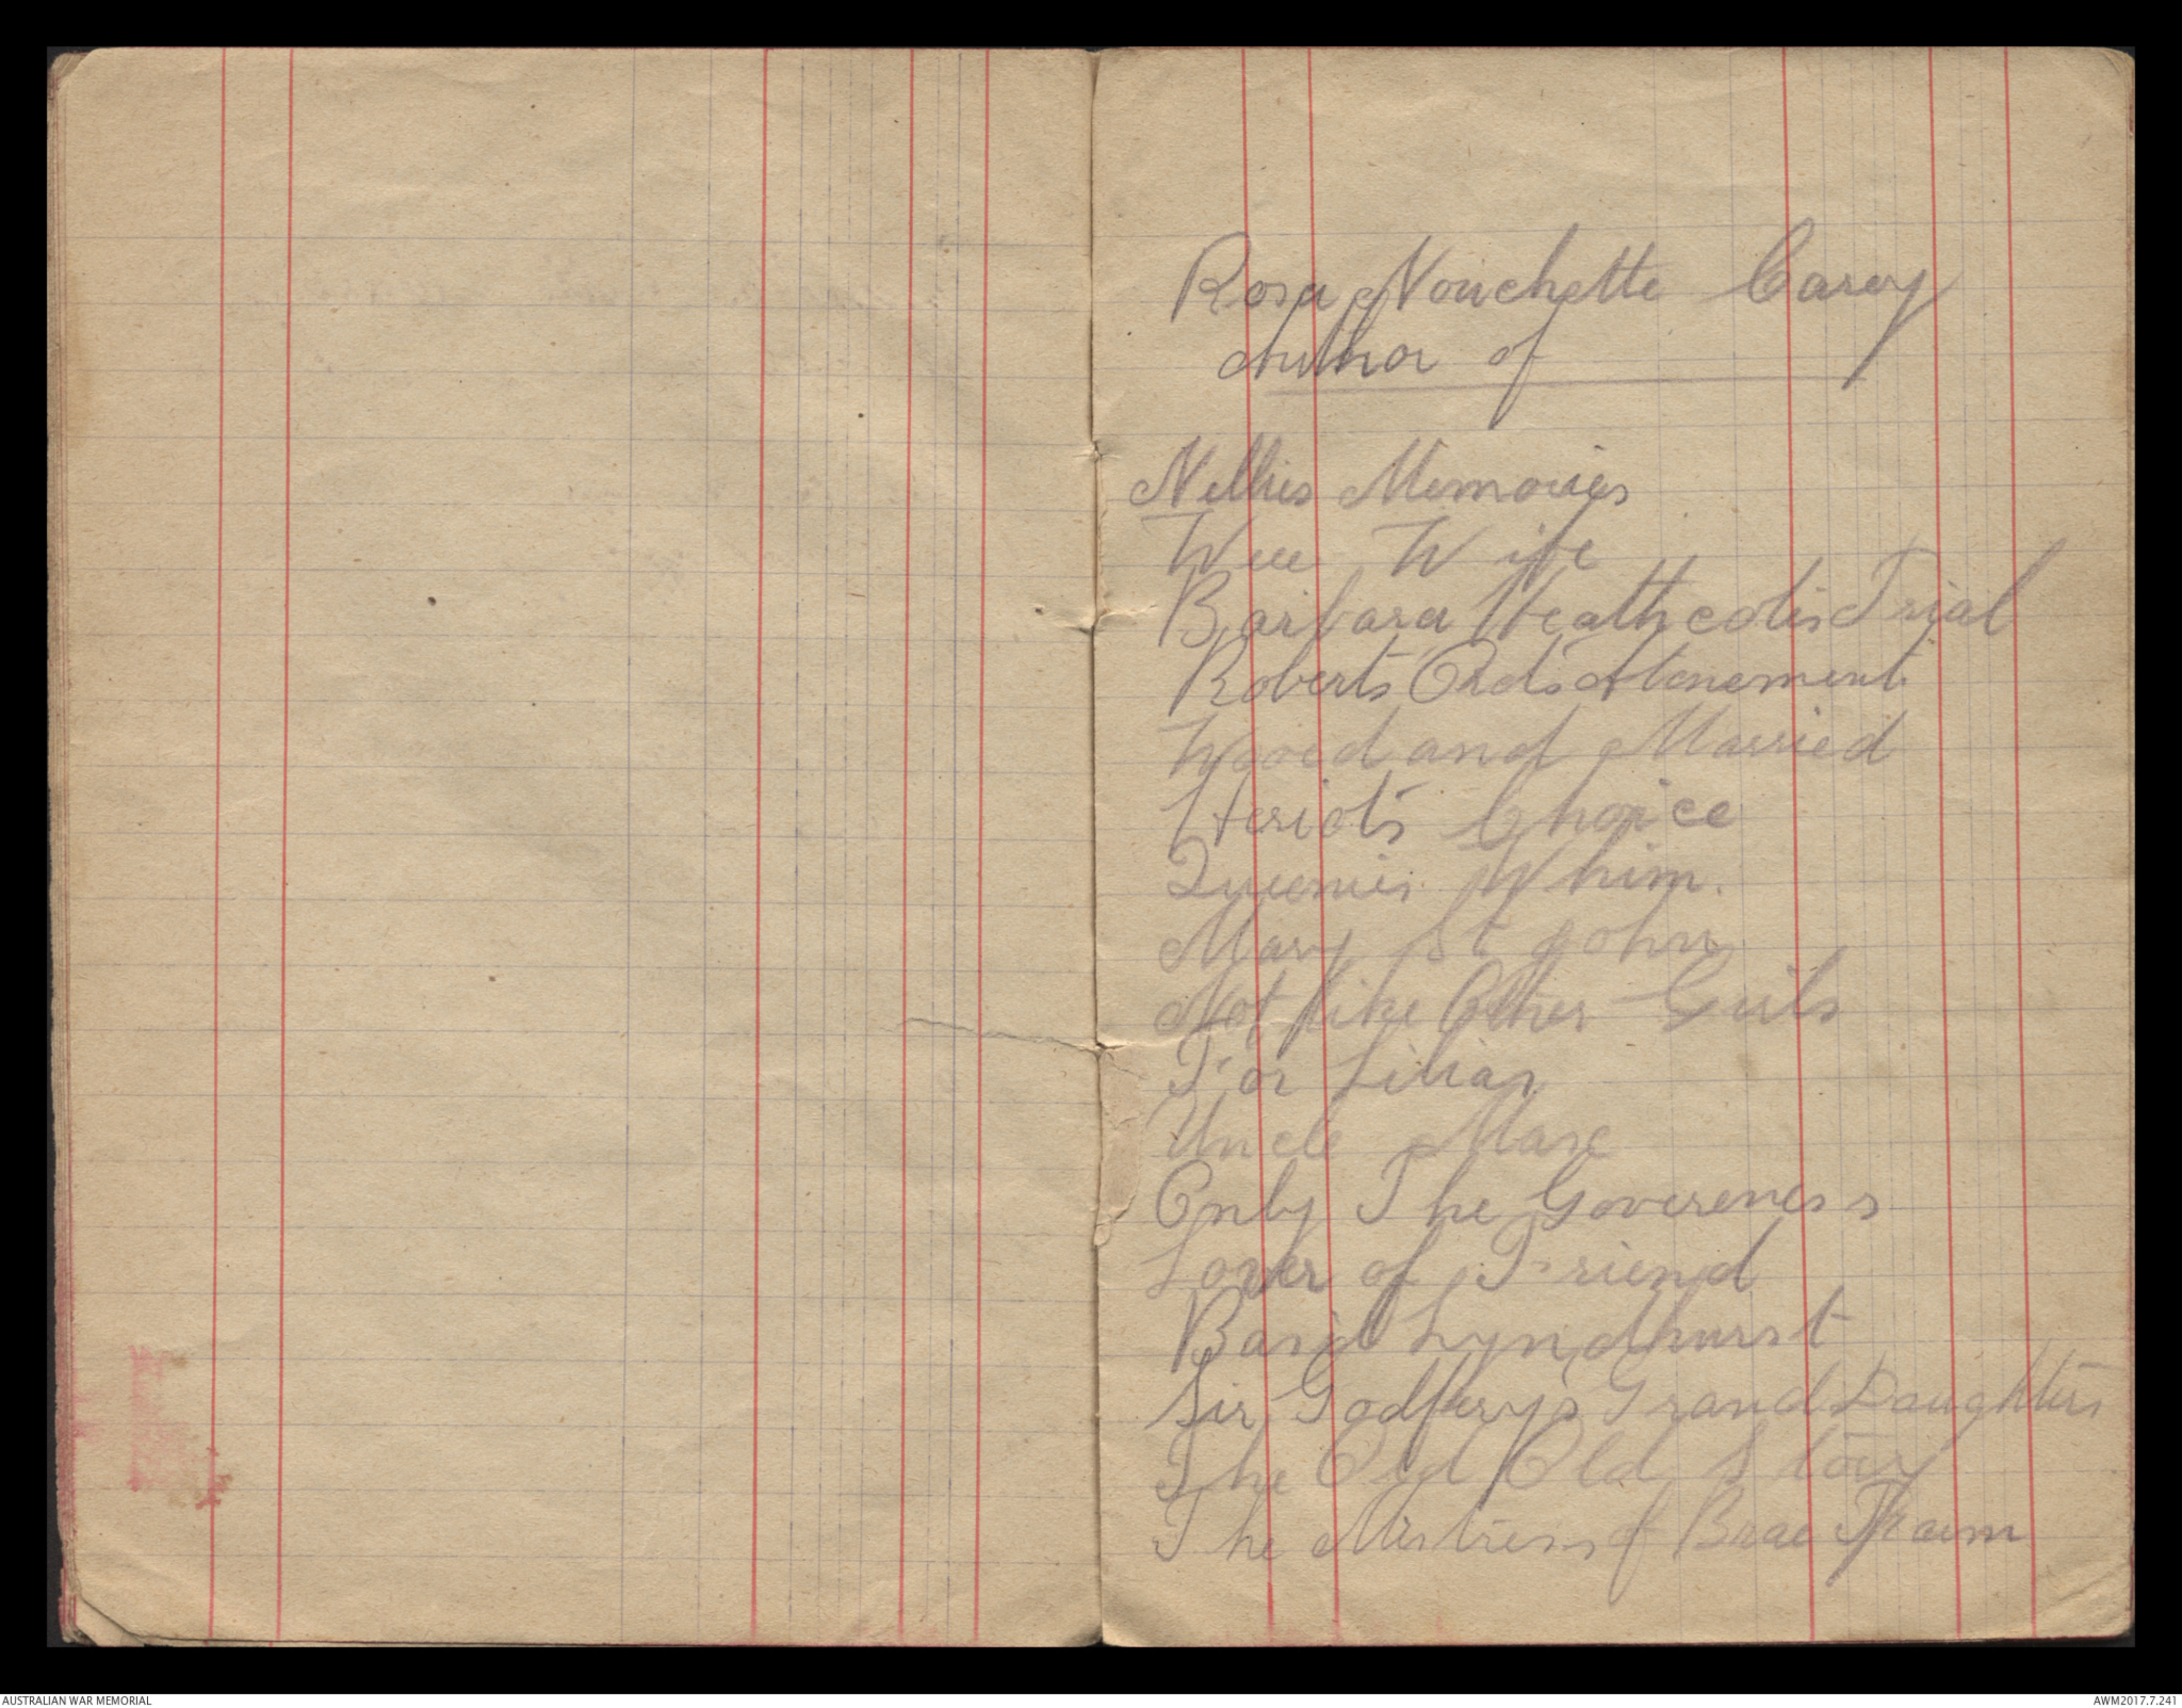 Rosa Nouchette Carey
Author of
Nellies Memories
Wee Wife
Barbara Heathcotes Trial
Roberts Ords Atonement
Wooed and Married
Heriots Choice
Queenies Whim.
Mary St John
Not like Other Girls
For Lilias
Uncle Max
Only The Governess
Lover of Friend
Basil Lyndhurst
Sir Godferys Grand Daughters
The Old Old Story
The Mistress of Brae Farm
AUSTRALIAN WAR MEMORIAL
AWM2017.7.241